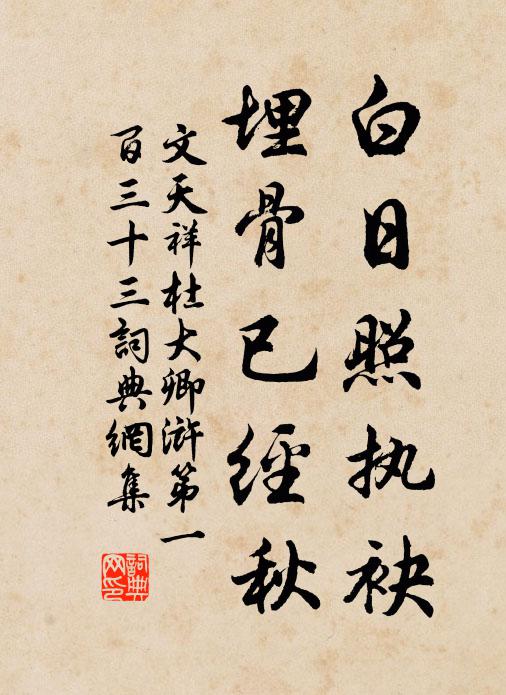 白日照执袂
埋骨已經秋
文天祥杜大卿滸第一
百三十三詞典網集
詞典网印